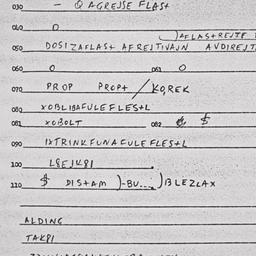 030 - Q AGREJSE FLAST
040 O
)AFLASTREJTE
050 DOSIZAFLAST AFREJTIVAJN AVDIREJT
060 O 061 O
070 PROP PROPT / KQREK
080 XOBLIBAFULEFLESTL
081 XOBOLT 082 $
090 IXTRINKFUNAFULEFLESTL
100 LBEJKPI
110 $ DISTAM )-BU...)BLEZLAX
ALDING
TAKPI